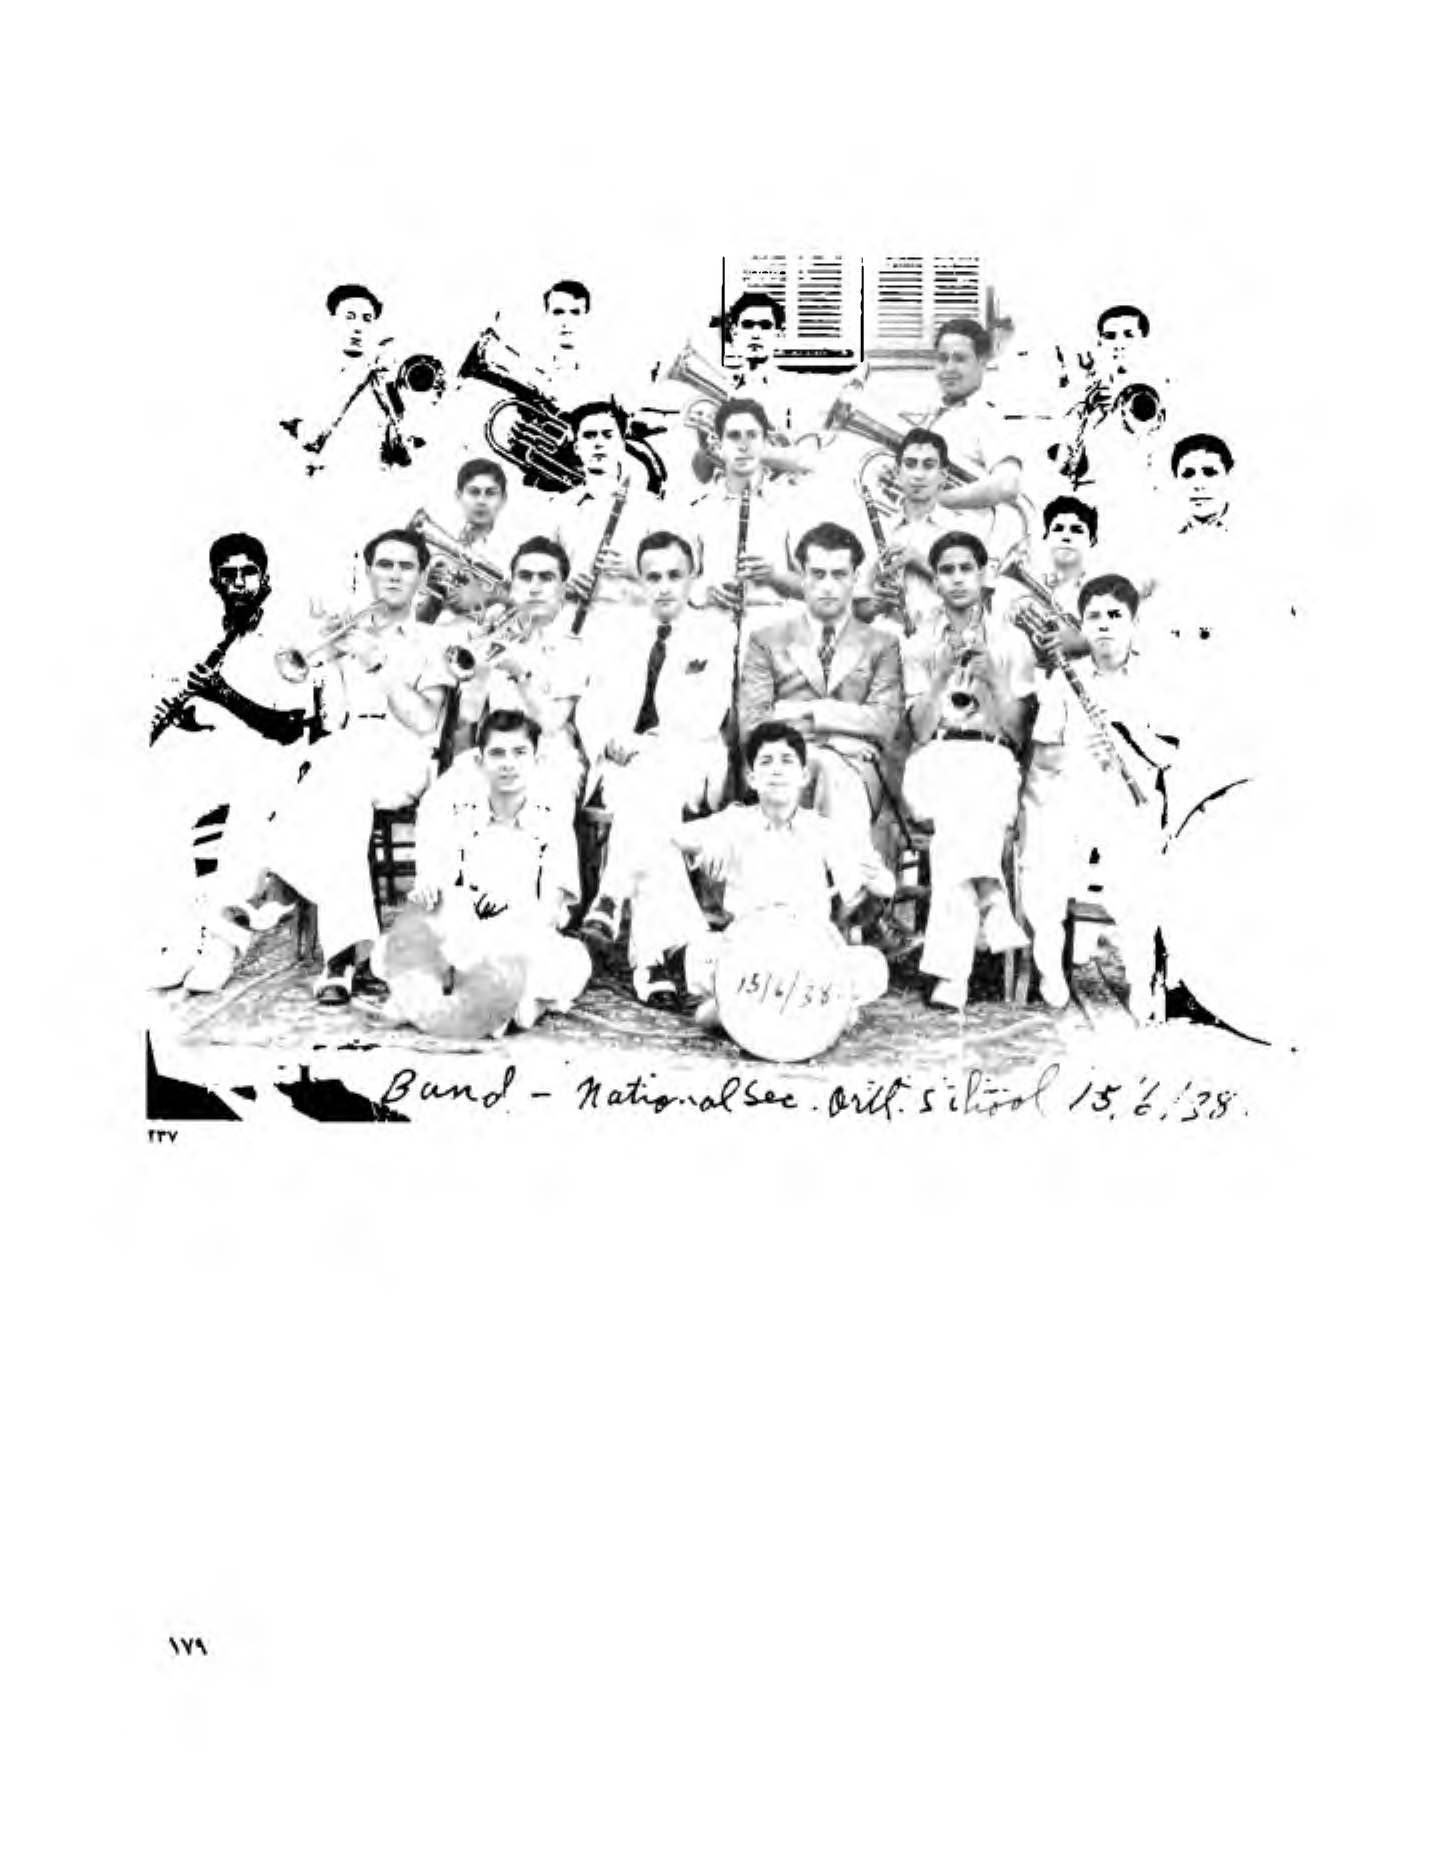 15/6/38
Band - National Sec. Orth. School 15/6/38.
٢٣٧
١٧٩